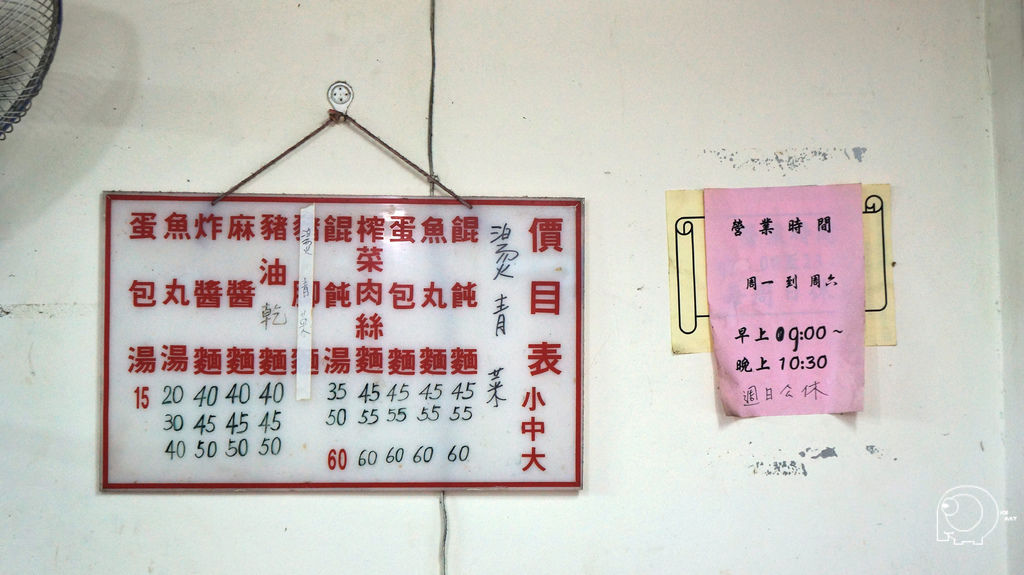 價目表 小中大
燙青菜
餛飩麵 45 55 60
魚丸麵 45 55 60
蛋包麵 45 55 60
榨菜肉絲麵 45 55 60
餛飩湯 35 50 60
燙青菜
麵
豬油乾麵 40 45 50
麻醬麵 40 45 50
炸醬麵 40 45 50
魚丸湯 20 30 40
蛋包湯 15
營業時間
周一到周六
早上09:00~
晚上10:30
週日公休